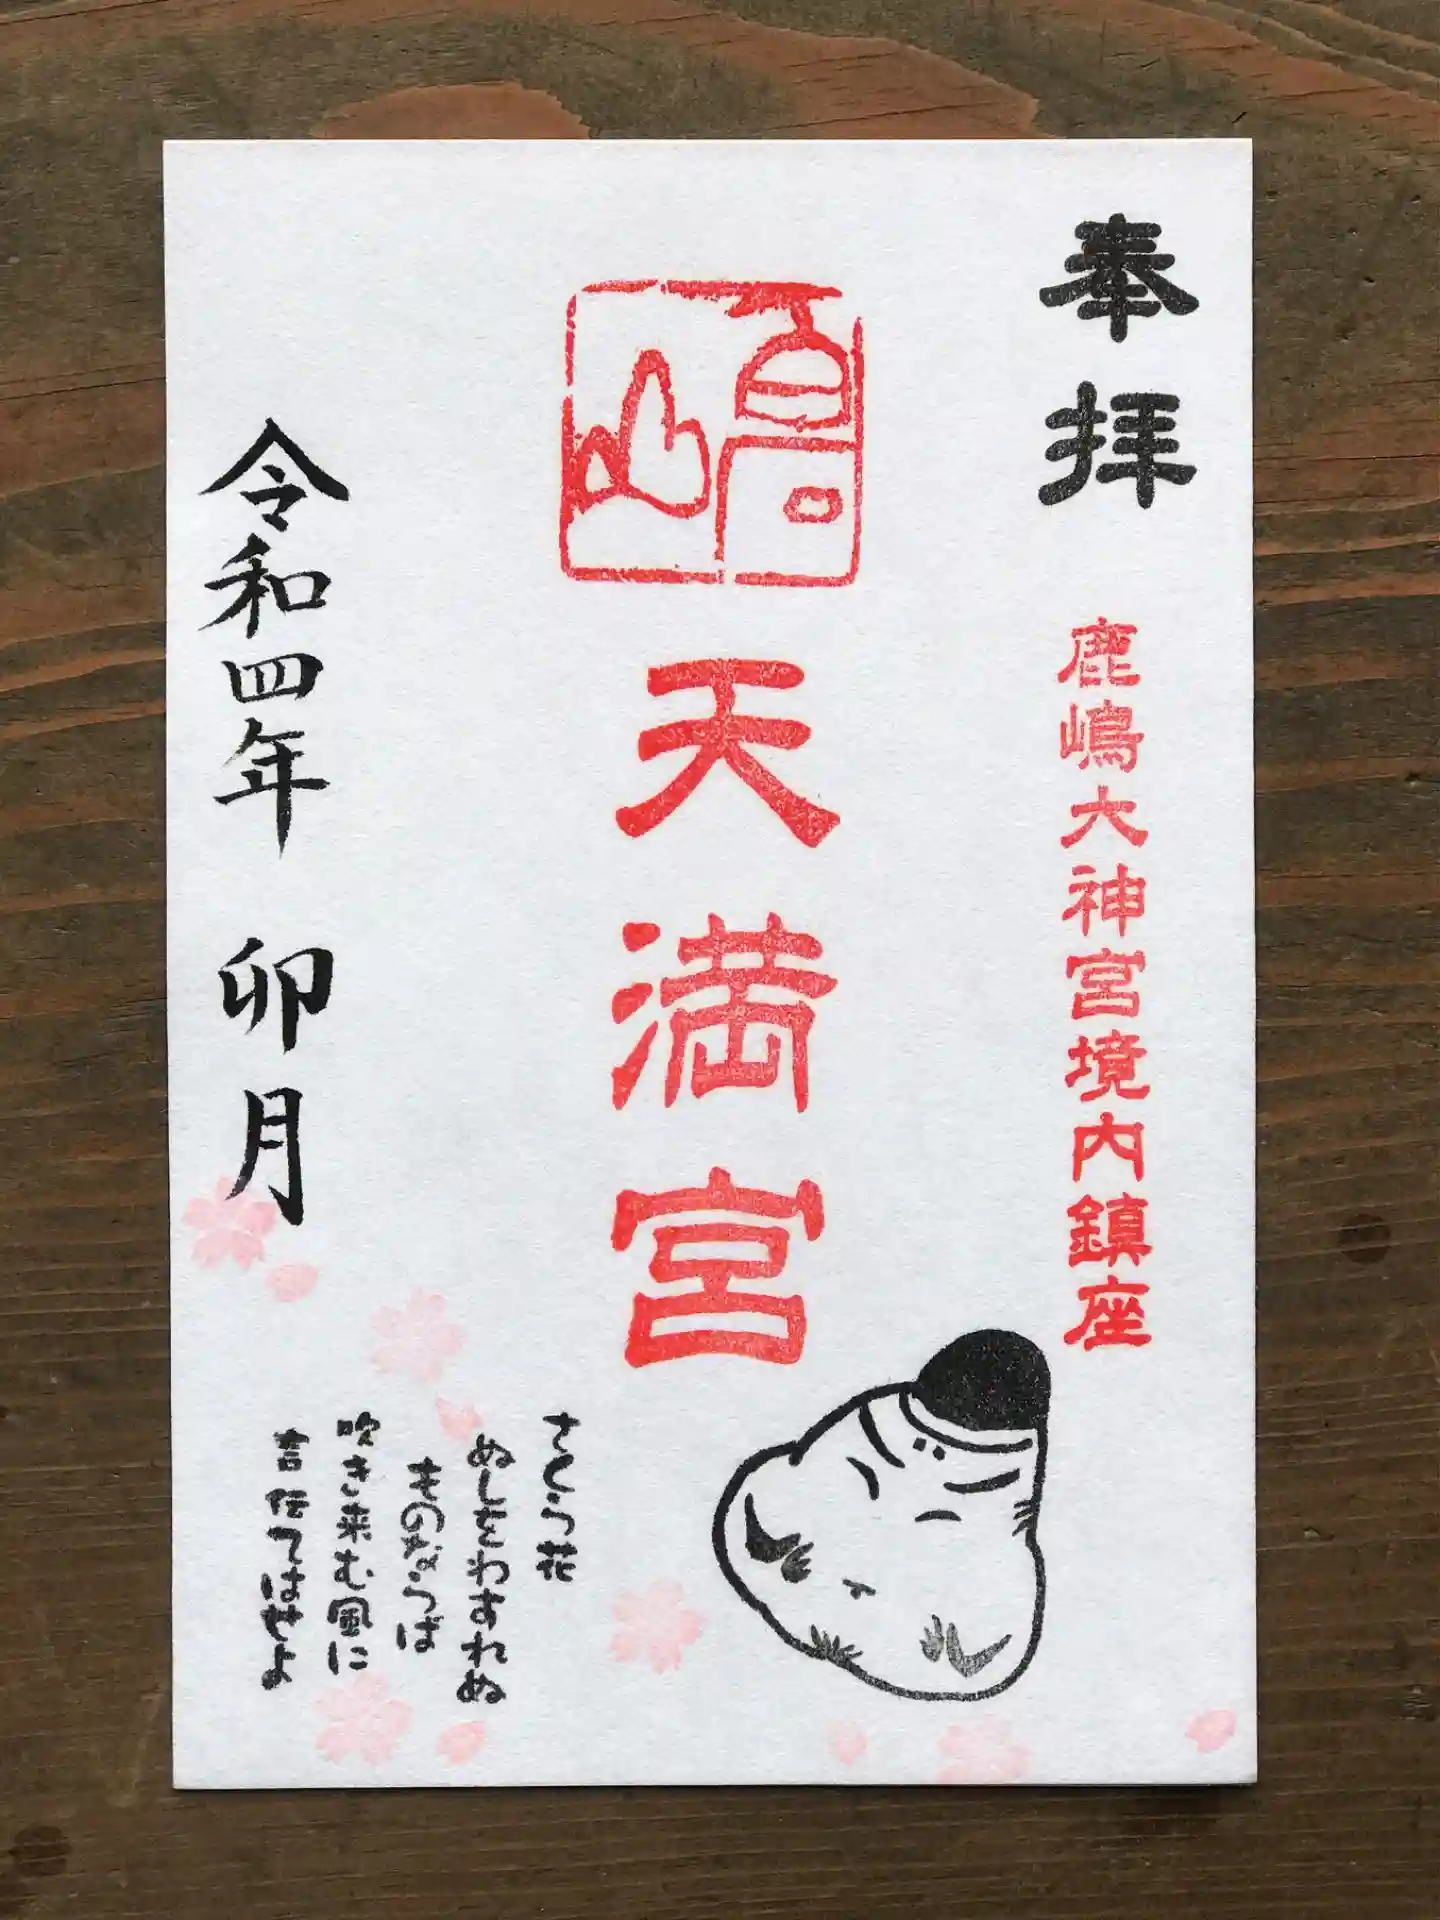 奉拝
鹿嶋大神宮境内鎮座
嶋
天満宮
さくら花
ぬしをわすれぬ
ものならば
吹き来む風に
言伝てはせよ
令和四年 卯月